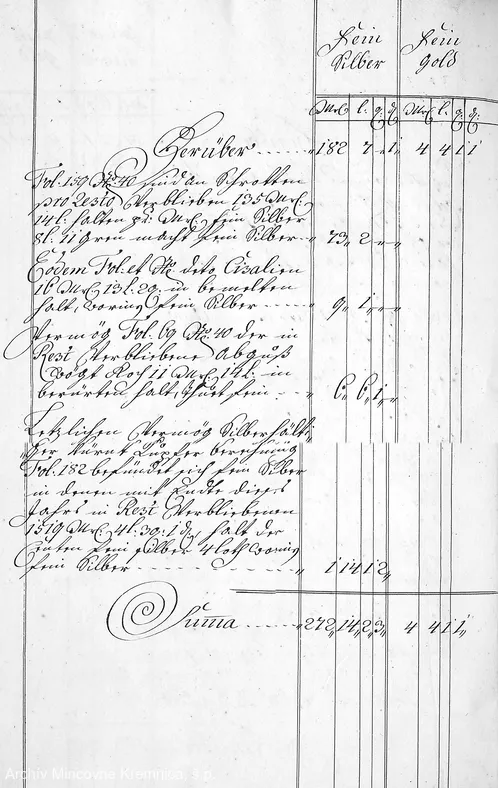 Fein Fein
Silber gold
Mr l. q. d Mr l. q. d:
Herüber 182 7 - 1 4 4 1 1
Fol: 159 No 40 sind an Schrotten
pro Resto Verblieben 135 Mr:
14 l. halten pr: Mr: fein Silber
8 l. 11 gren macht fein Silber 73 2
Eodem Fol: et No dito Cisalien
16 Mr 13 l. 2 q. in bemelten
halt, worin fein Silber 9 1
Vermög Fol. 69 No 40 der in
Rest Verbliebene Abguß
wögt Noch 11 Mr 14 l. in
berürten halt, thuet fein 6 6 1
Letzlichen Vermög Silberhält
Fol: 182 befündet sich fein Silber
in denen mit Endte dieses
Jahrs in Rest Verbliebenen
1519 Mr 4 l. 3 q: 1 d, halt der
Centen fein Silber 4 loth worin
fein Silber 1 14 1 2
Suma 272 14 2 3 4 4 1 1
Archiv Mincovne Kremnica, š.p.